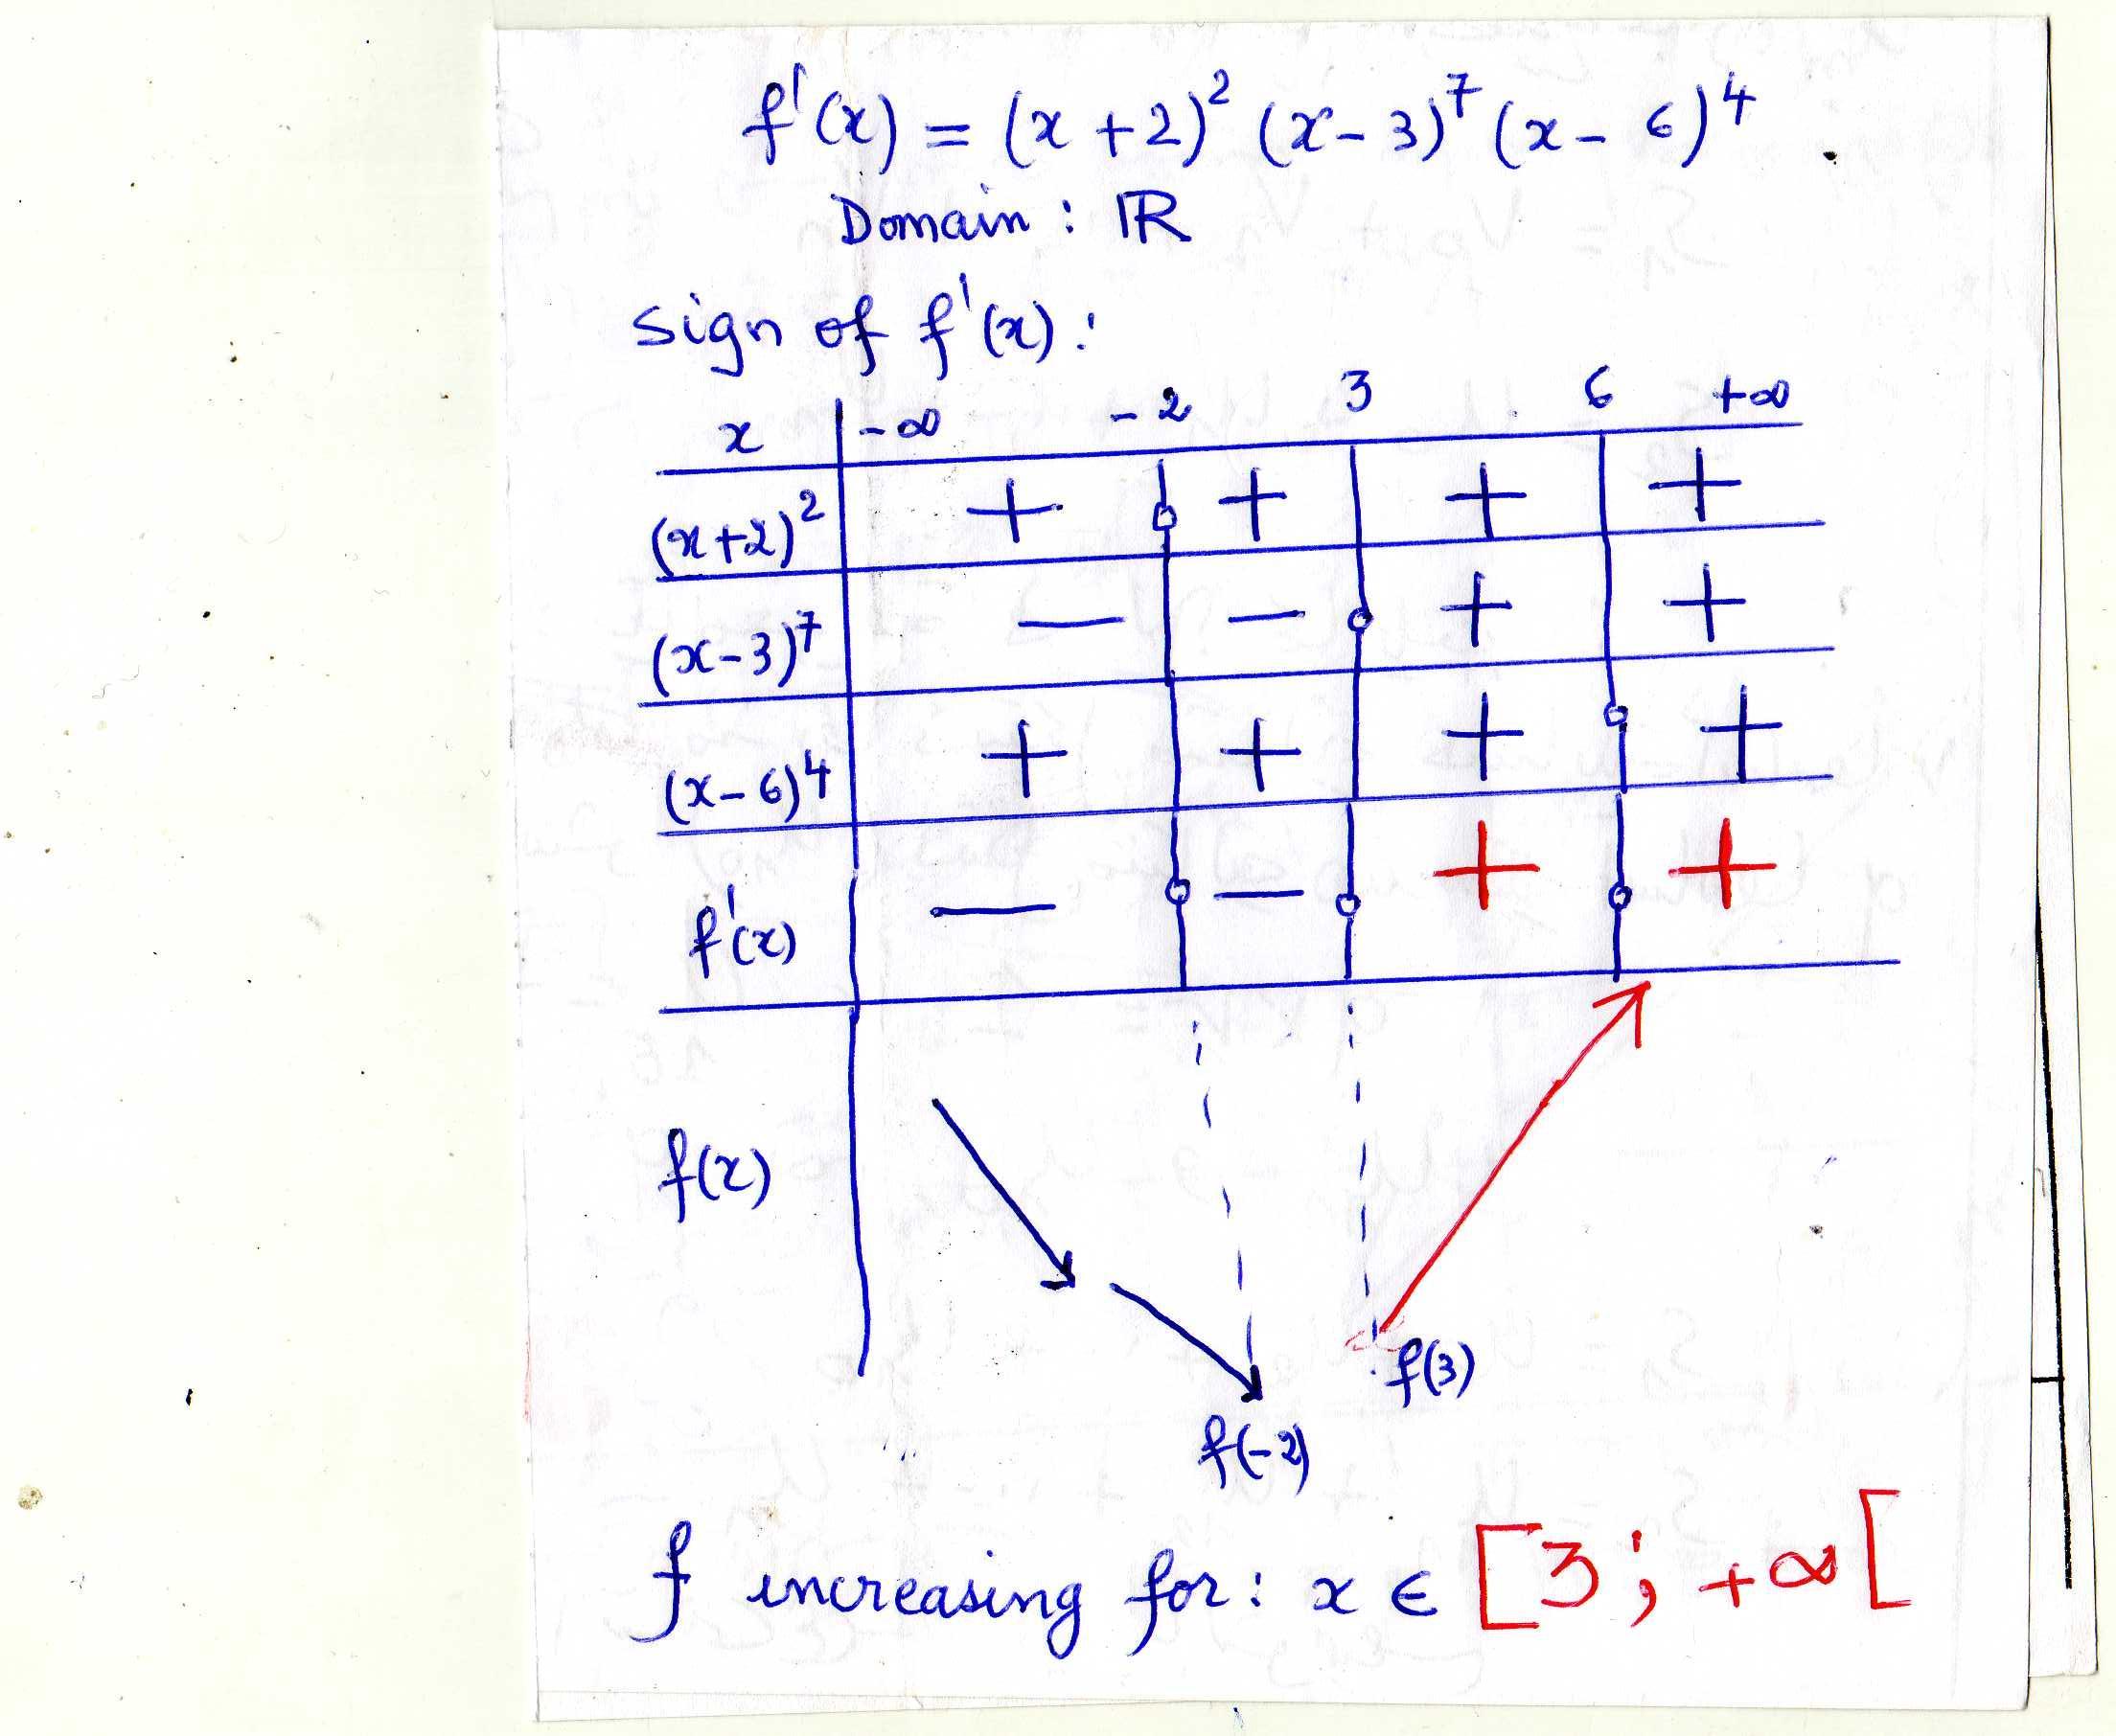 f'(x) = (x + 2)² (x - 3)⁷ (x - 6)⁴.
Domain : ℝ
Sign of f'(x) :
x -∞ -2 3 6 +∞
(x+2)² + + + +
(x-3)⁷ — — + +
(x-6)⁴ + + + +
f'(x) — — + +
f(x)
f(3)
f(-2)
f increasing for : x ∈ [3 ; +∞ [